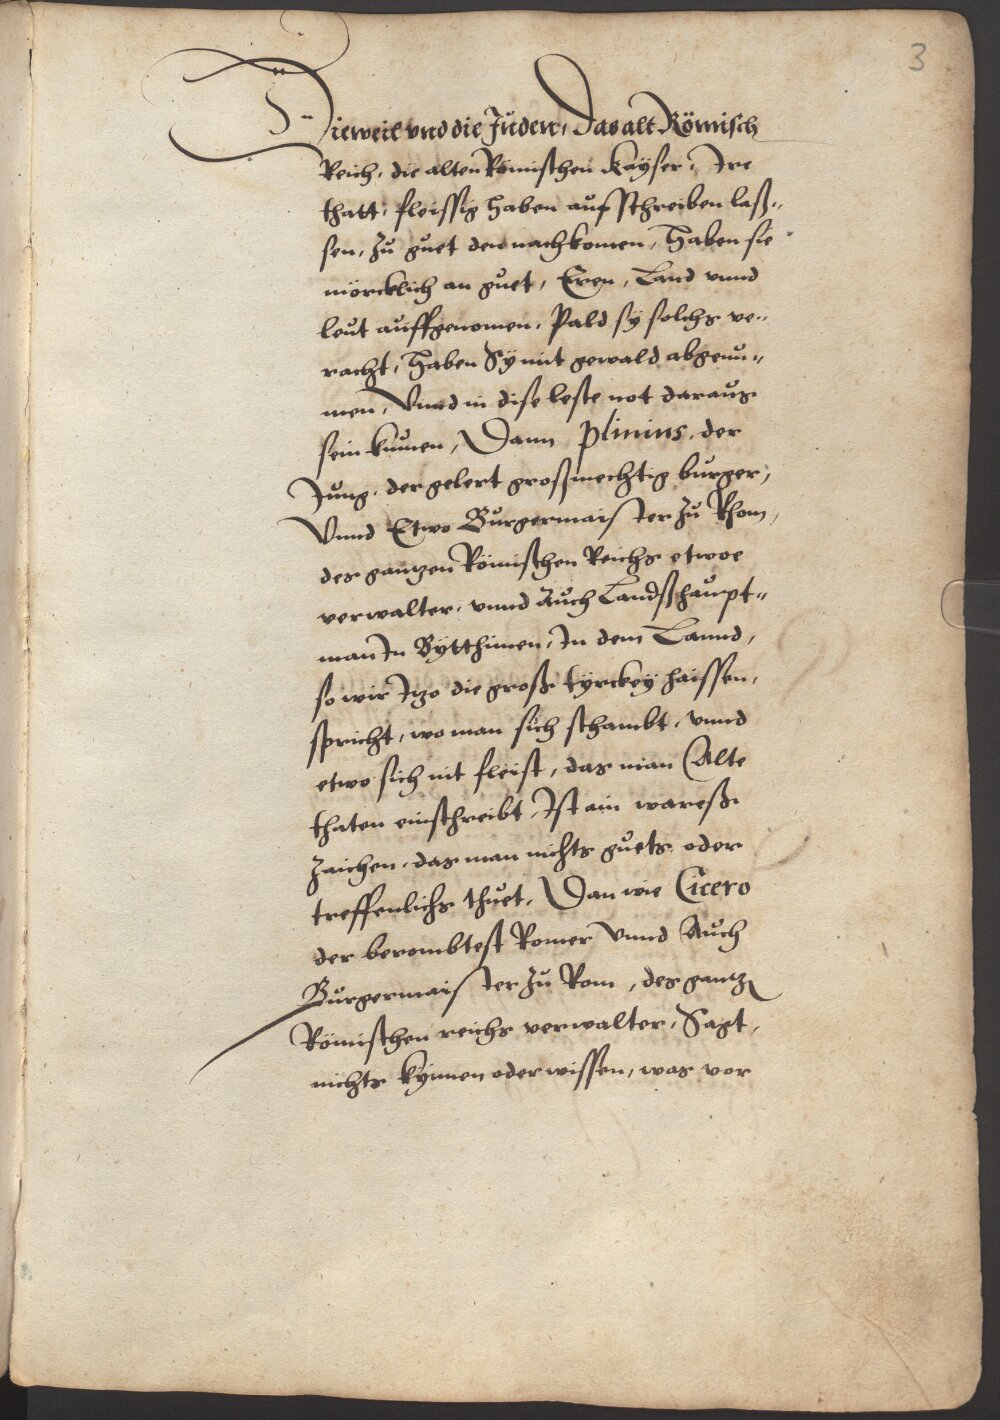 3
Dieweil vnd die Juden, Das alt Römisch
Reich, die alten Römischen Kayser, Ire
thatt, fleissig haben auf schreiben laß⸗
sen, zu guet den nachkomen, haben sie
mörcklich an guet, Eren, Land vnnd
leut auffgenomen, Pald sy solchs ve⸗
racht, haben Sy mit gewald abgenu⸗
men, Vnnd in dise leste not daraus
sein kumen, Dann Plinius, der
Jung, der gelert großmechtig burger,
Vnnd Etwo Burgermaister zu Rhom,
des gantzen Römischen Reichs etwoe
verwalter, vnnd Auch Landßhaupt⸗
man In Bytthinien, In dem Lannd,
so wir Itzo die große Tyrckey haissen,
spricht, wo man sich schambt, vnnd
etwo sich nit fleist, das man Alte
thaten einschreibt, Ist ain wareß
zaichen, das man nichts guets oder
treffenlichs thuet, Dan wie Cicero
der berombtest Romer Vnnd Auch
Burgermaister zu Rom, des gantz
Römischen reichs verwalter, Sagt,
nichts kynnen oder wissen, was vor